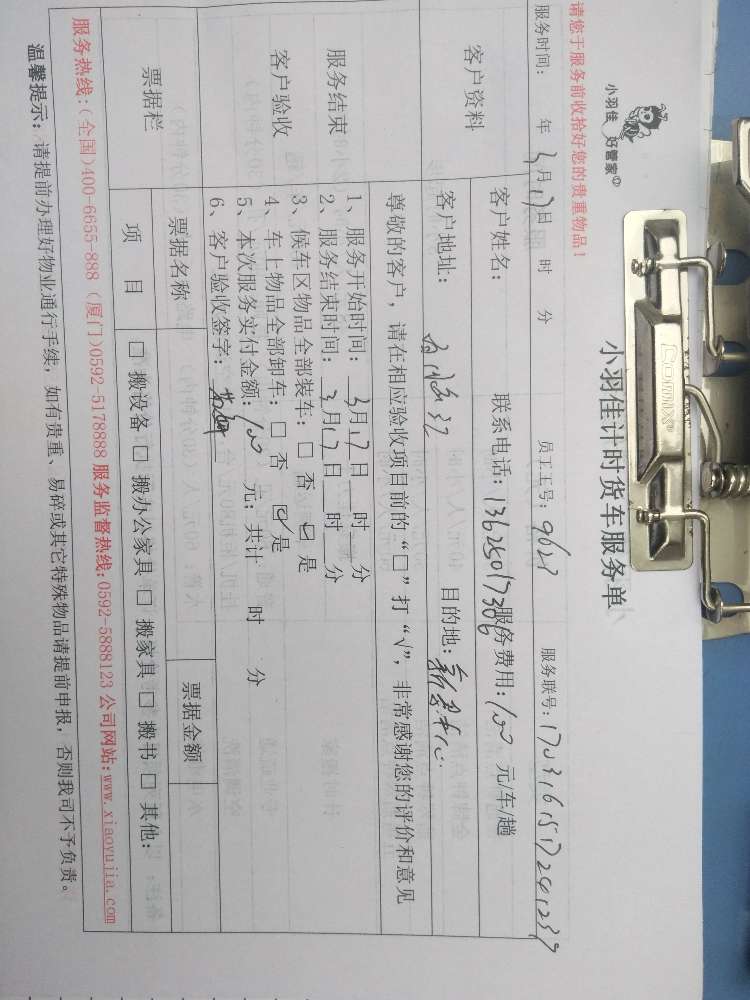 小羽佳 好管家
COMIX
小羽佳计时货车服务单
请您于服务前收拾好您的贵重物品！
服务时间： 年 3月17日 时 分 员工工号：9627 服务联号：
客户资料
客户姓名： 联系电话：13625017306 服务费用：100 元/车/趟
客户地址： 目的地：
服务结束
客户验收
尊敬的客户，请在相应验收项目前的“□”打“√”，非常感谢您的评价和意见
1、服务开始时间：3月17日 时 分
2、服务结束时间：3月17日 时 分
3、候车区物品全部装车：□ 否 ☑ 是
4、车上物品全部卸车：□ 否 ☑ 是
5、本次服务实付金额：100 元；共计 时 分
6、客户验收签字：
票据栏
票据名称 票据金额
项 目 □ 搬设备 □ 搬办公家具 □ 搬家具 □ 搬书 □ 其他：
服务热线：（全国）400-6655-888（厦门）0592-5178888 服务监督热线：0592-5888123 公司网站：www.xiaoyujia.com
温馨提示：请提前办理好物业通行手续，如有贵重、易碎或其它特殊物品请提前申报，否则我司不予负责。